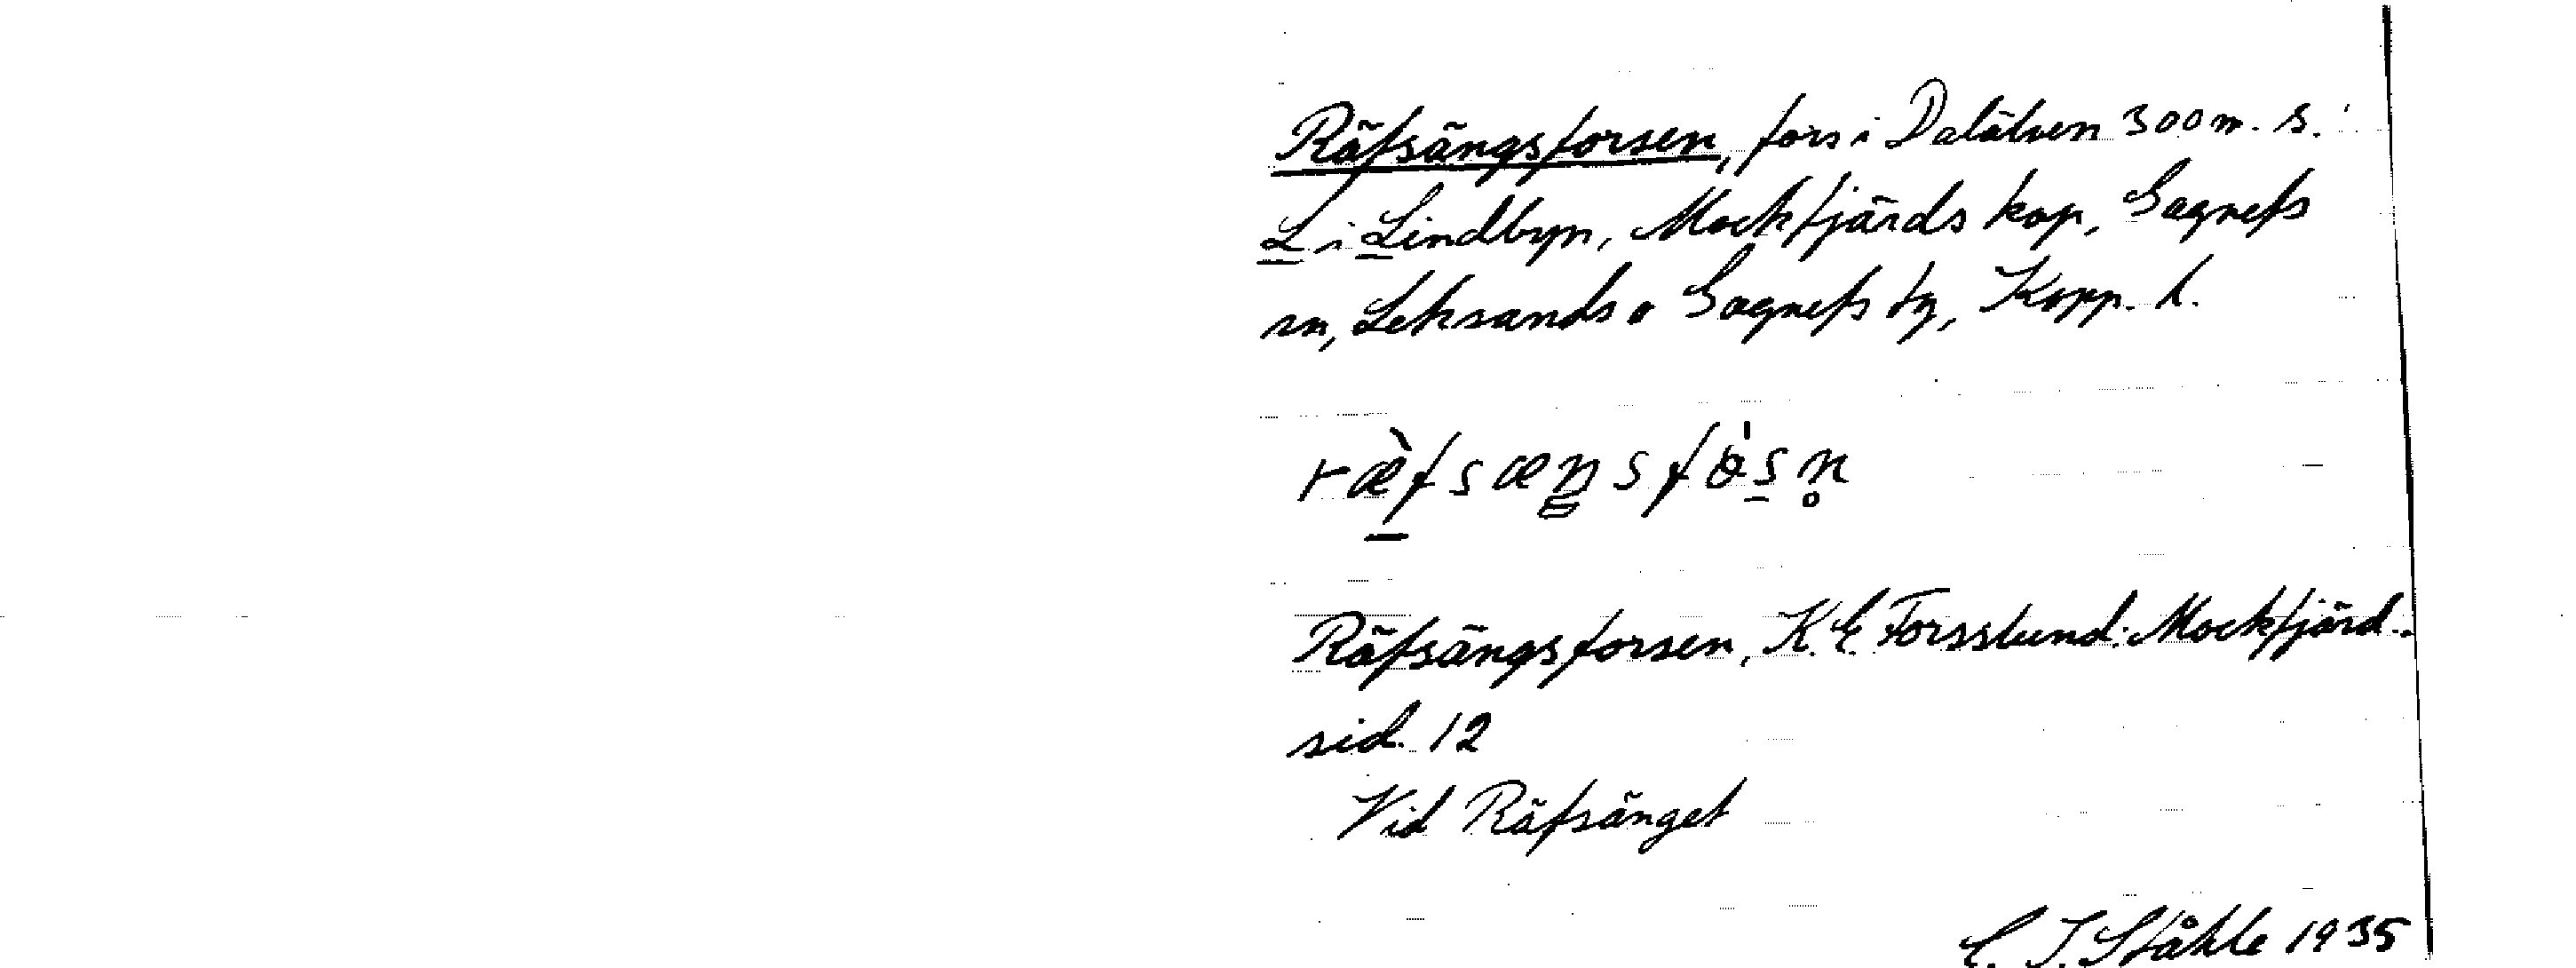 Räfsängsforsen, fors i Dalälven 300 m. s.
L i Lindbyn, Mockfjärds kap, Gagnefs
sn, Leksands o Gagnefs tg, Kopp. l.
ræ̀fsæŋsfɵ̀sn̥
Räfsängsforsen, K. E Forsslund: Mockfjärd.
sid. 12
Vid Räfsänget
C. I. Ståhle 1935